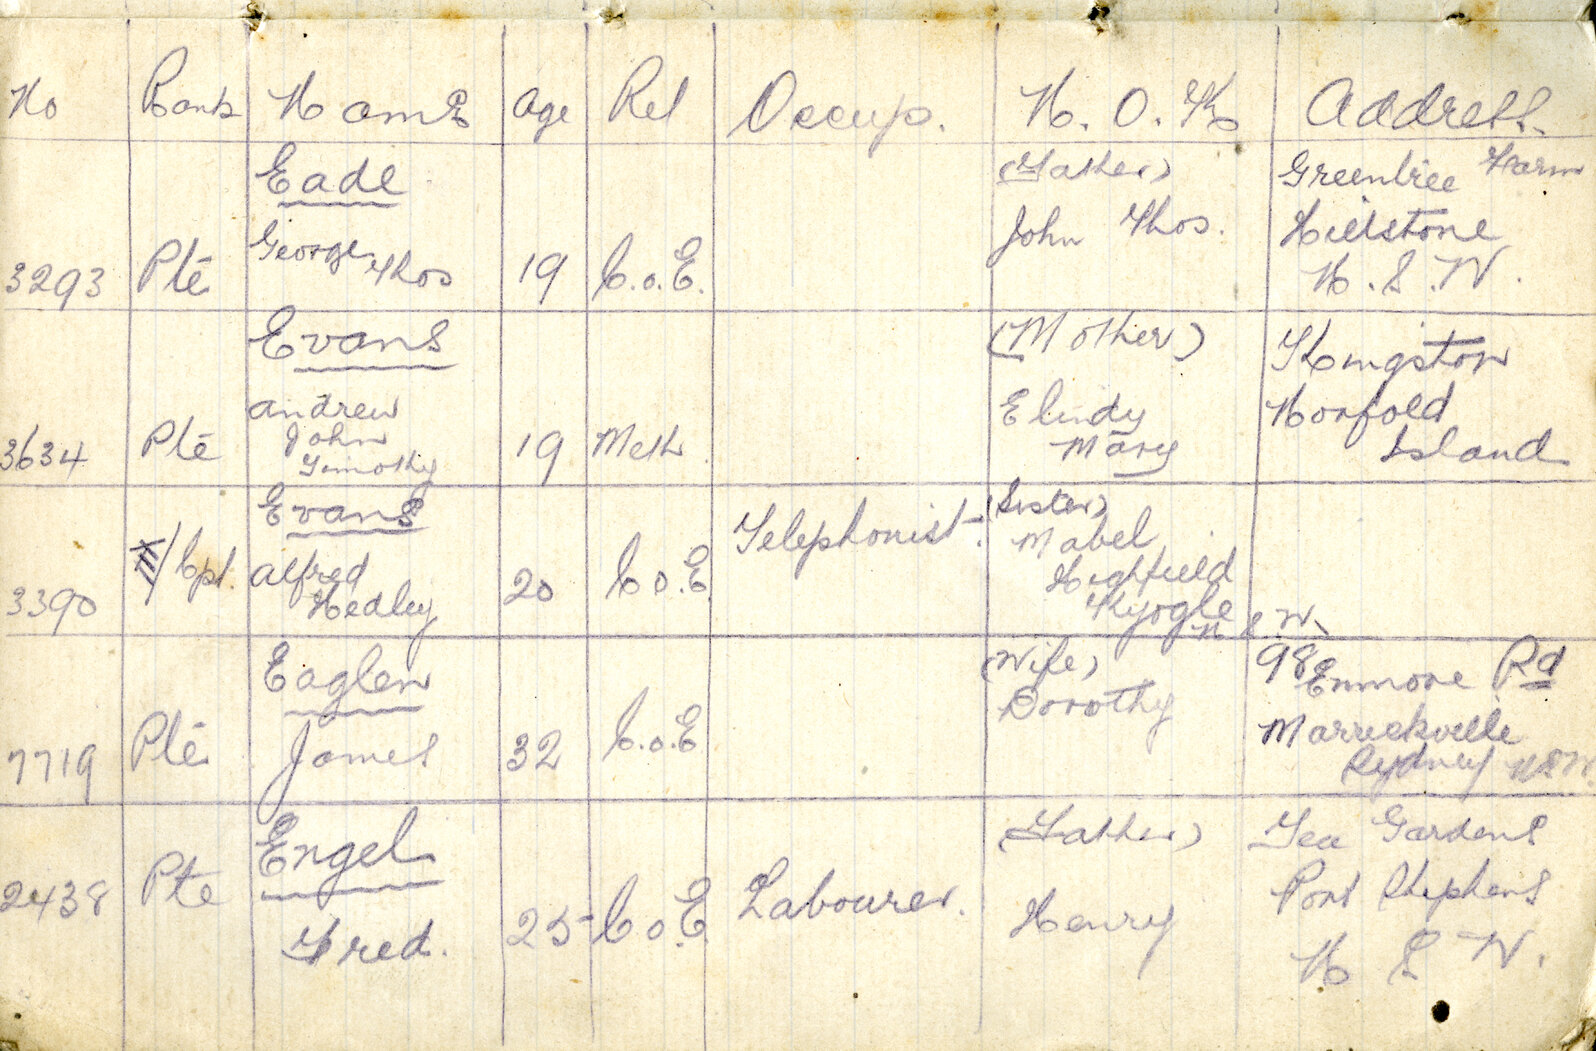 No Rank Name Age Rel Occup. N.O.K Address.
Eade (Father) Greentree Farm
George Thos John Thos. Hillstone
3293 Pte 19 C.o.E. N.S.W.
Evans (Mother) Kingston
Andrew Elindy Norfold
John Mary Island
3634 Pte Timothy 19 Meth
Evans Telephonist. (Sister)
Cpl. Alfred Mabel
3390 Hedley 20 C o.E Highfield
Kyogle
N S W.
Eaglen (Wife) 98 Enmore Rd
Dorothy Marrickville
7719 Pte James 32 C.o.E Sydney NSW.
Engel (Father) Tea Gardens
2438 Pte Port Stephens
Fred. 25 C o.E Labourer. Henry N S W.